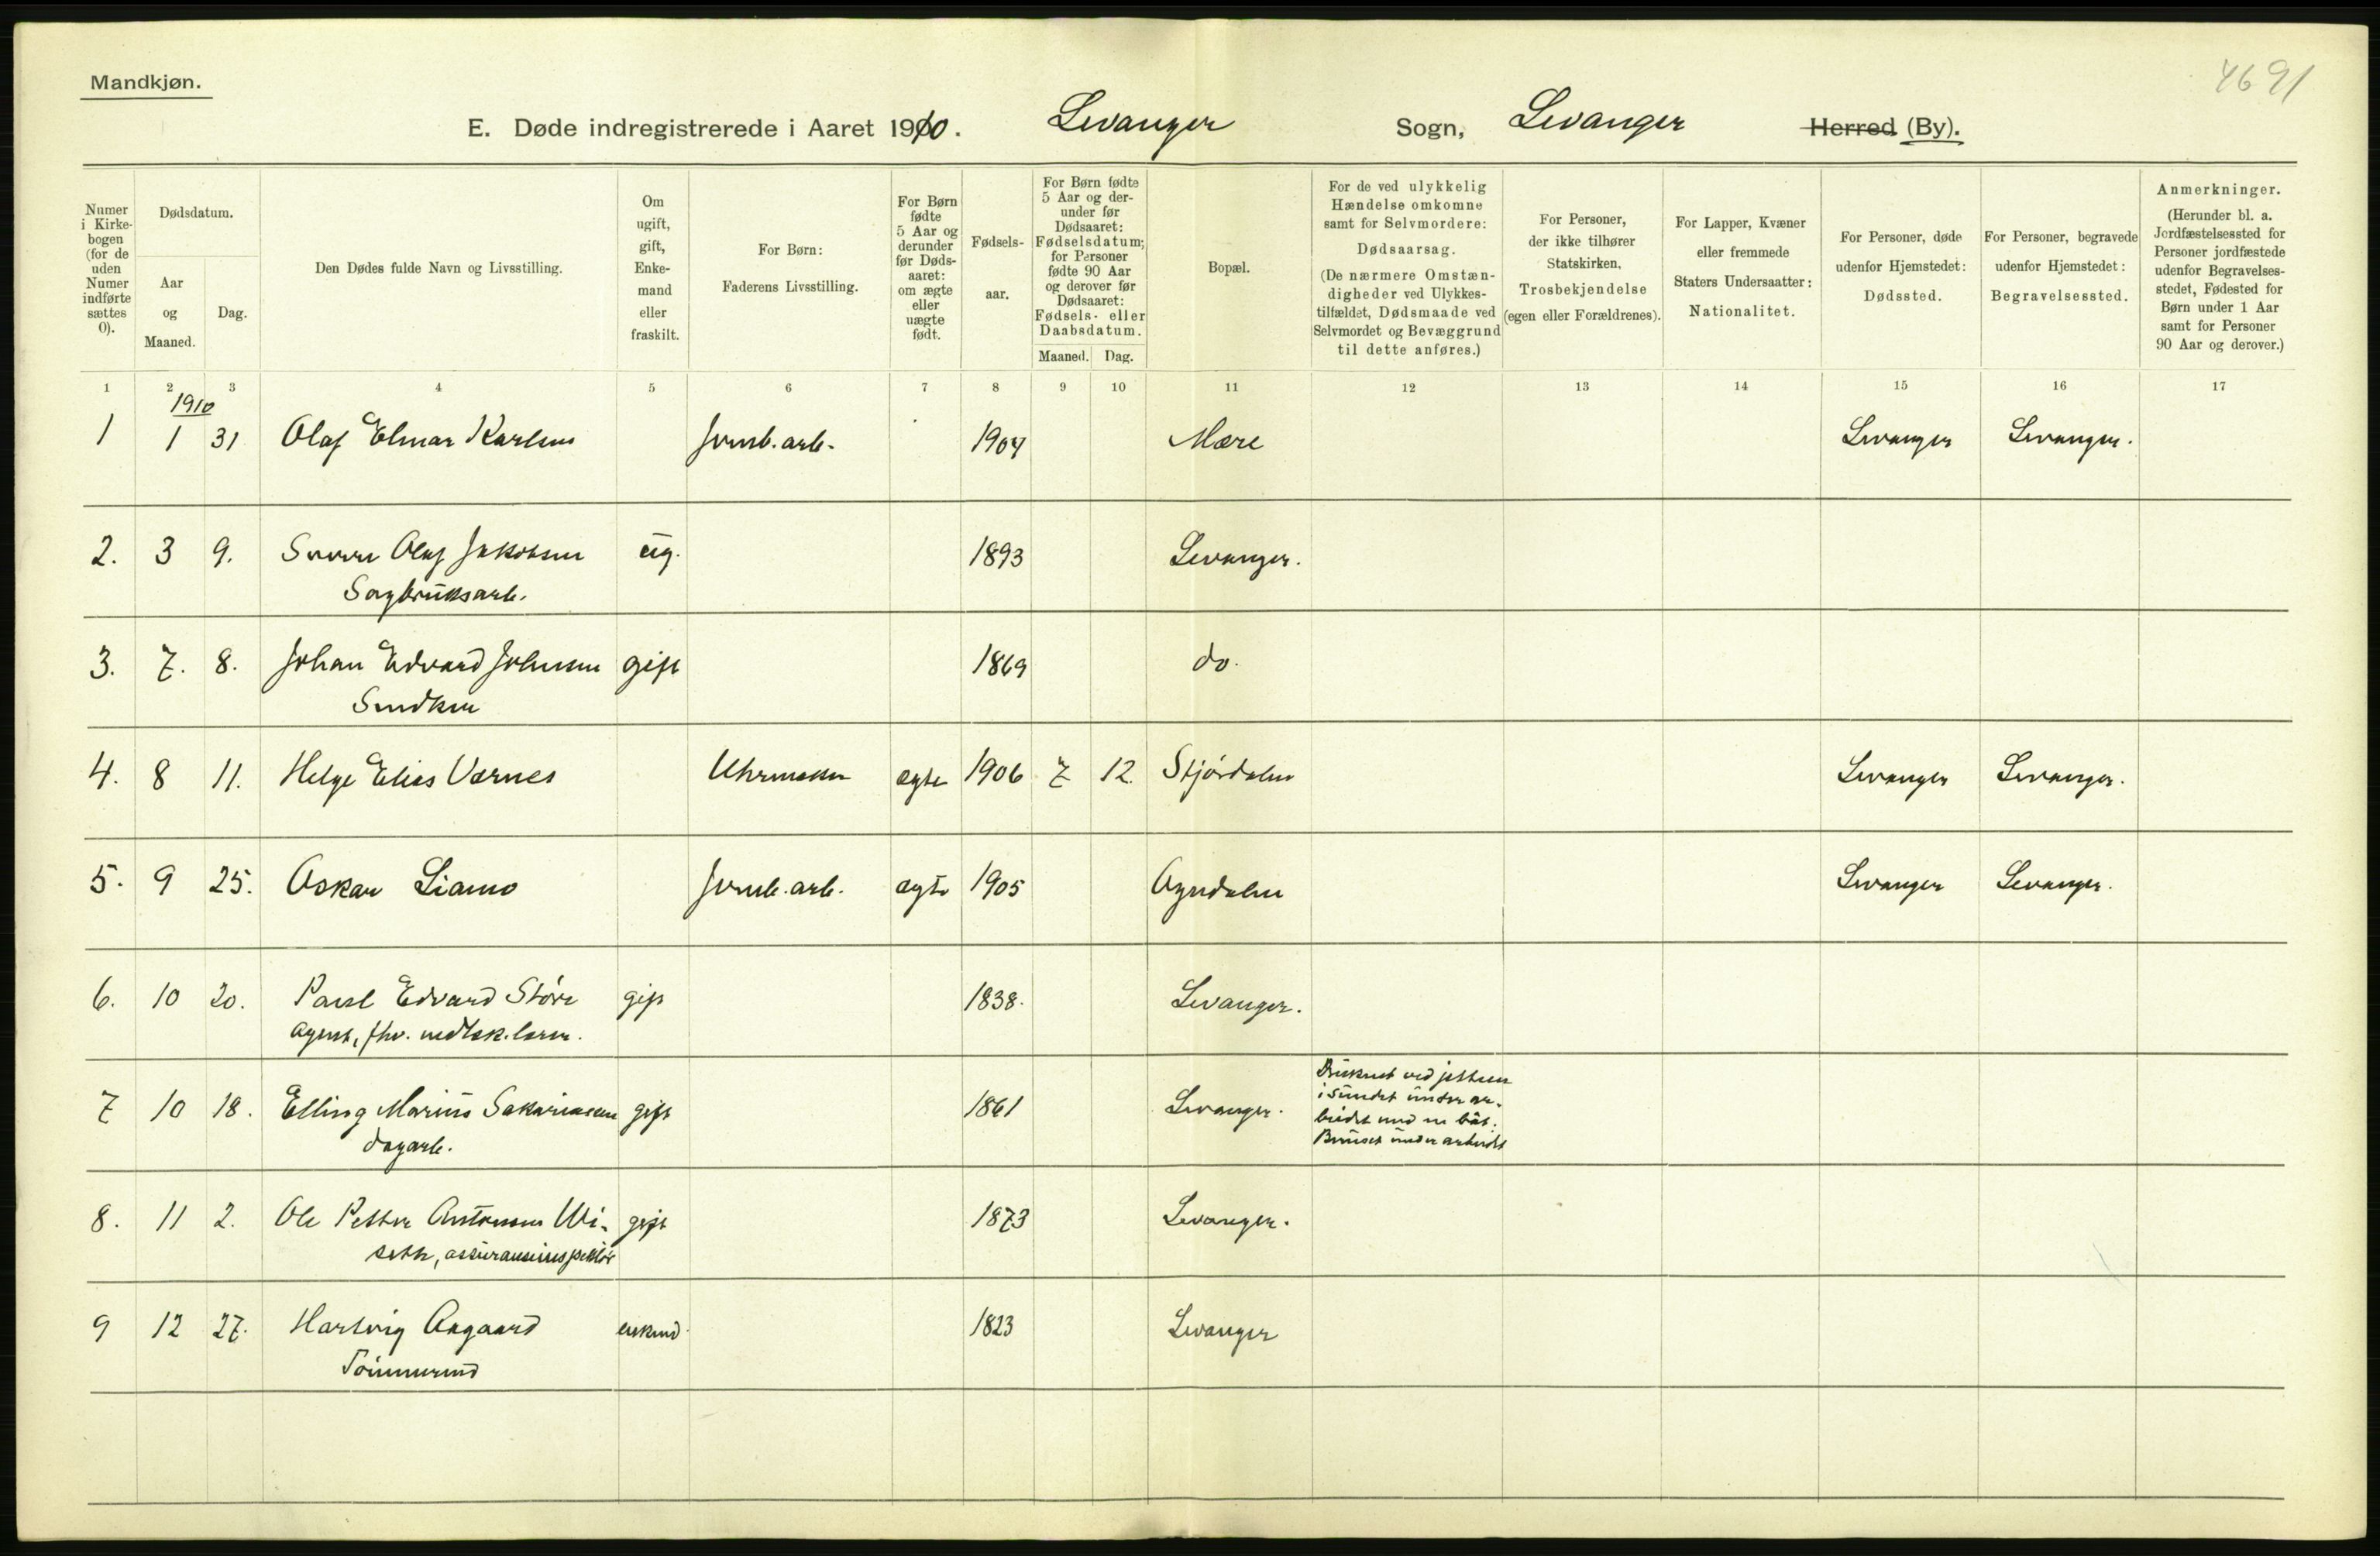 4691
Mandkjøn.
E. Døde indregistrerede i Aaret 1910. Levanger Sogn, Levanger Herred (By).
Numer i Kirkebogen (for de uden Numer indførte sættes 0).
Dødsdatum.
Aar og Maaned.
Dag.
Den Dødes fulde Navn og Livsstilling.
Om ugift, gift, Enkemand eller fraskilt.
For Børn: Faderens Livsstilling.
For Børn fødte 5 Aar og derunder før Dødsaaret: om ægte eller uægte født.
Fødselsaar.
For Børn fødte 5 Aar og derunder før Dødsaaret: Fødselsdatum; for Personer fødte 90 Aar og derover før Dødsaaret: Fødsels- eller Daabsdatum.
Maaned. Dag.
Bopæl.
For de ved ulykkelig Hændelse omkomne samt for Selvmordere: Dødsaarsag. (De nærmere Omstændigheder ved Ulykkestilfældet, Dødsmaade ved Selvmordet og Bevæggrund til dette anføres.)
For Personer, der ikke tilhører Statskirken, Trosbekjendelse (egen eller Forældrenes).
For Lapper, Kvæner eller fremmede Staters Undersaatter: Nationalitet.
For Personer, døde udenfor Hjemstedet: Dødssted.
For Personer, begravede udenfor Hjemstedet: Begravelsessted.
Anmerkninger. (Herunder bl. a. Jordfæstelsessted for Personer jordfæstede udenfor Begravelsesstedet, Fødested for Børn under 1 Aar samt for Personer 90 Aar og derover.)
1 2 3 4 5 6 7 8 9 10 11 12 13 14 15 16 17
1910
1 1 31 Olaf Elmar Karlsen Jernb.arb. 1904 Mære Levanger Levanger.
2. 3 9. Sverre Olaf Jakobsen ug. 1893 Levanger.
Sagbruksarb.
3. 7. 8. Johan Edvard Johnsen gift 1869 do.
Snedker
4. 8 11. Helge Elias Værnes Uhrmaker ægte 1906 7 12. Stjørdalen Levanger Levanger.
5. 9 25. Oskar Liamo Jernb.arb. ægte 1905 Ogndalen Levanger Levanger.
6. 10 20. Paul Edvard Støre gift 1838. Levanger.
agent, fhv. middsk. lærer.
7 10 18. Elling Marius Sakariassen gift 1861 Levanger. Druknet ved jetteen
i Sundet under ar-
beidet med en båt.
Beruset under arbeidet
dagarb.
8. 11 2. Ole Petter Antonsen Wi- gift 1873 Levanger.
seth, assuranseinspektør
9 12 27. Hartvig Aagaard enkemd. 1823 Levanger
Tømmermd